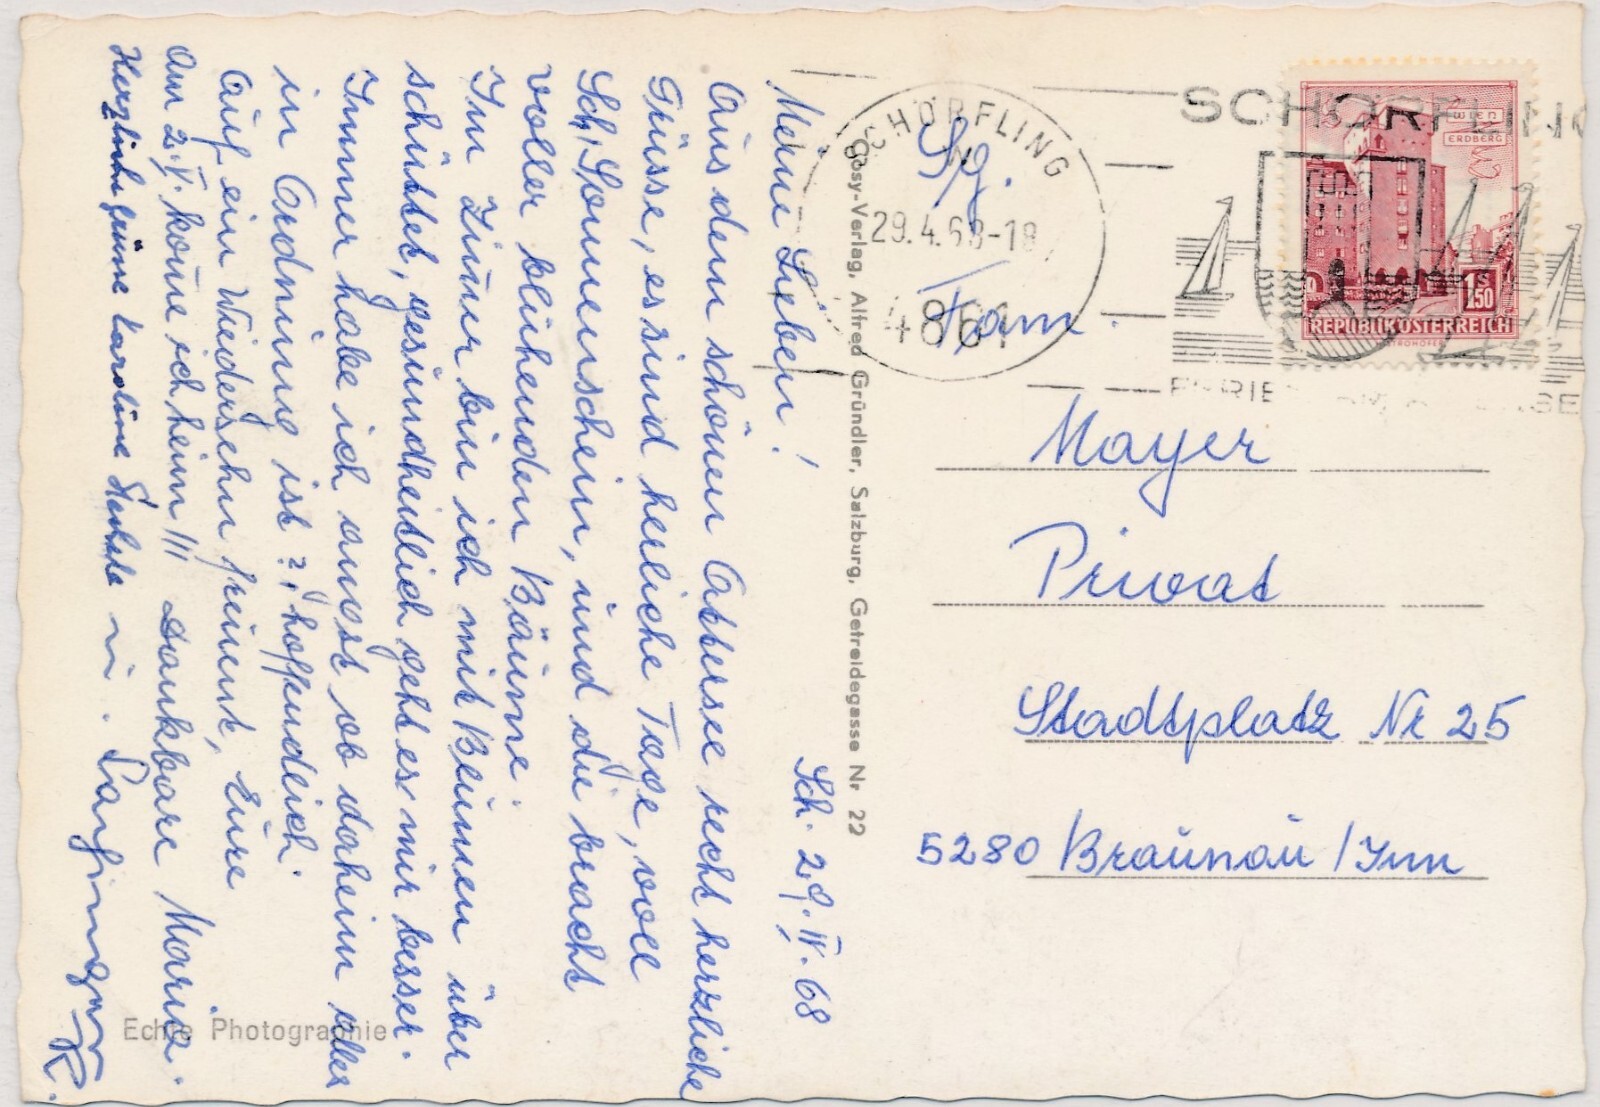 Sch. 29. IV. 68
Meine Lieben!
Aus dem schönen Attersee recht herzliche
Grüsse, es sind herliche Tage, voll
Sch, Sonnenschein, und die pracht
voller blühenden Bäume.
Im Zimer bin ich mit Blumen über
schüttet, gesundheitlich geht es mir besser.
Immer habe ich angst ob daheim alles
in Ordnung ist?, hoffendlich.
Auf ein Wiedersehn freunt, Eure
Am 2. V. kome ich heim!!! dankbare Maria.
Herzliche Grüsse Karoline
Echte Photographie
Cosy-Verlag, Alfred Gründler, Salzburg, Getreidegasse Nr 22
SCHÖRFLING
29. 4. 68-18
4861
SCHÖRFLING
WIEN
ERDBERG
1.50
REPUBLIK ÖSTERREICH
Sg.
Fam.
Mayer
Privat
Stadtplatz Nr 25
5280 Braunau / Inn